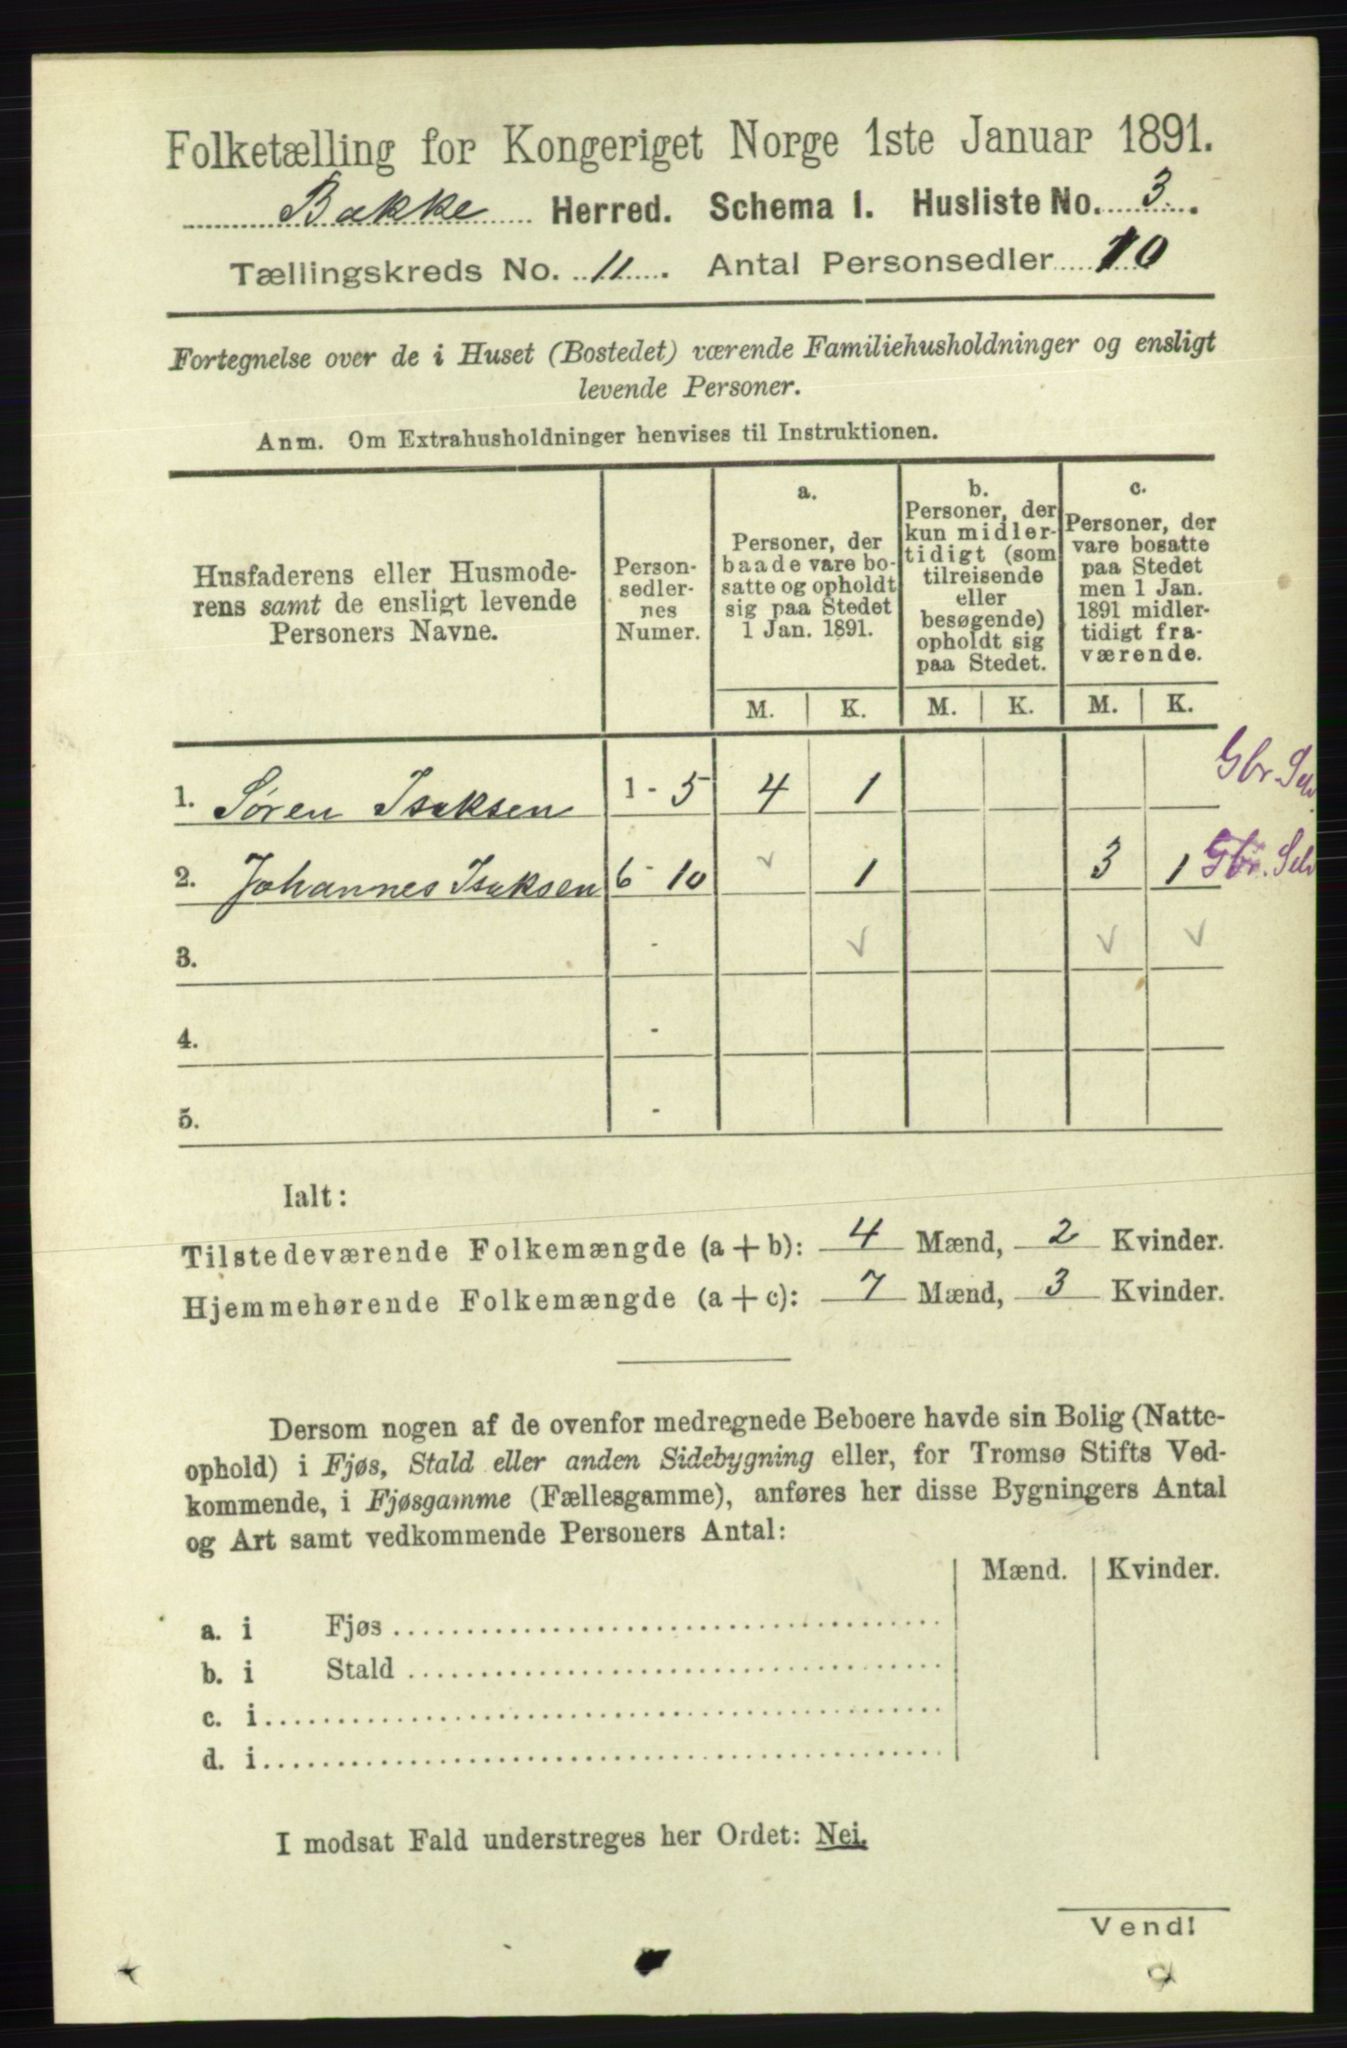 Folketælling for Kongeriget Norge 1ste Januar 1891.
Bakke Herred. Schema I. Husliste No. 3.
Tællingskreds No. 11. Antal Personsedler 10
Fortegnelse over de i Huset (Bostedet) værende Familiehusholdninger og ensligt
levende Personer.
Anm. Om Extrahusholdninger henvises til Instruktionen.
Husfaderens eller Husmode-
rens samt de ensligt levende
Personers Navne.
Person-
sedler-
nes
Numer.
a.
Personer, der
baade vare bo-
satte og opholdt
sig paa Stedet
1 Jan. 1891.
b.
Personer, der
kun midler-
tidigt (som
tilreisende
eller
besøgende)
opholdt sig
paa Stedet.
c.
Personer, der
vare bosatte
paa Stedet
men 1 Jan.
1891 midler-
tidigt fra-
værende.
M. K. M. K. M. K.
1. Søren Isaksen 1 - 5 4 1 Gbr. Selv
2. Johannes Isaksen 6 - 10 ✓ 1 3 1 Gbr. Selv
3. - ✓ ✓ ✓
4. -
5. -
Ialt:
Tilstedeværende Folkemængde (a + b): 4 Mænd, 2 Kvinder.
Hjemmehørende Folkemængde (a + c): 7 Mænd, 3 Kvinder.
Dersom nogen af de ovenfor medregnede Beboere havde sin Bolig (Natte-
ophold) i Fjøs, Stald eller anden Sidebygning eller, for Tromsø Stifts Ved-
kommende, i Fjøsgamme (Fællesgamme), anføres her disse Bygningers Antal
og Art samt vedkommende Personers Antal:
Mænd. Kvinder.
a. i Fjøs
b. i Stald
c. i
d. i
I modsat Fald understreges her Ordet: Nei.
Vend!